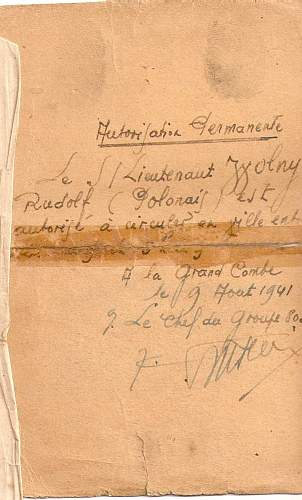 Autorisation Permanente
Le S/Lieutenant Wolny
Rudolf (Polonais) est
autorisé à circuler en ville ent
A la Grand Combe
le 9 Aout 1941
Le Chef du Groupe 80